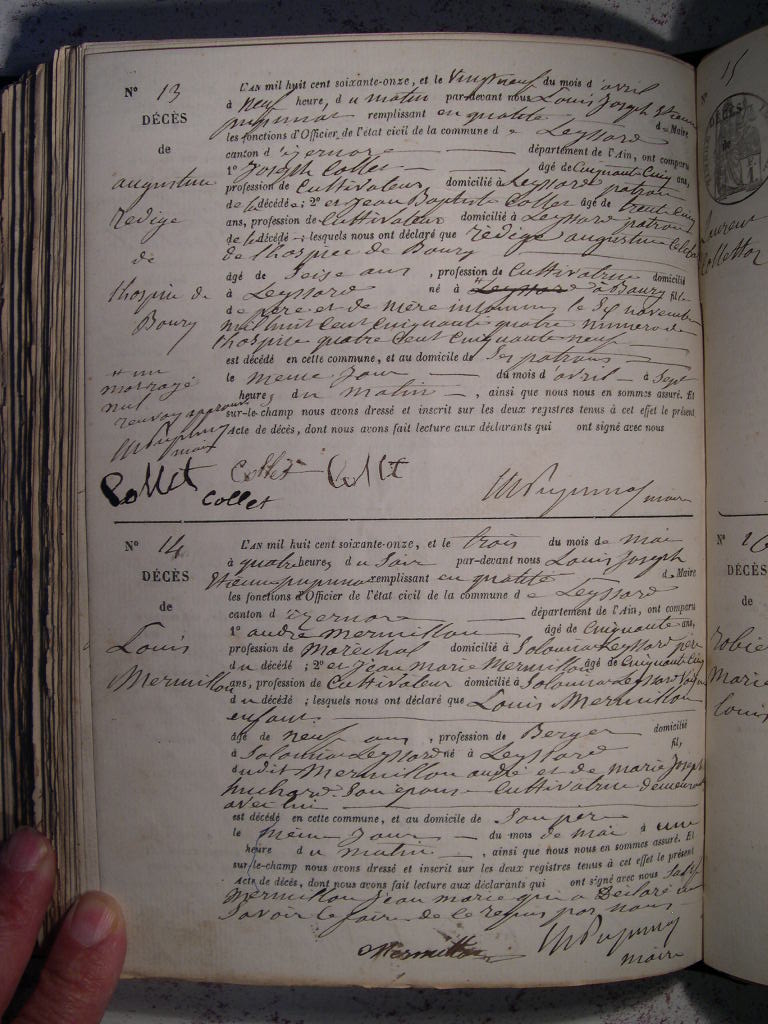 N° 13
DÉCÈS
de
augustine
redige
de
l'hospice de
Bourg
+ un
mot rayé
nul
renvoy approuvé
maire
L'AN mil huit cent soixante-onze, et le Vingt neuf du mois d'avril
à neuf heure, du matin par-devant nous Louis Joseph Etienne
pupunat remplissant en qualité de Maire
les fonctions d'Officier de l'état civil de la commune de Leyssard
canton d'izernore département de l'Ain, ont comparu
1° Joseph Collet âgé de Cinquante Cinq ans,
profession de Cultivateur domicilié à Leyssard patron
de la décédée; 2° et Jean Baptiste Collet âgé de trente Cinq
ans, profession de Cultivateur domicilié à Leyssard patron
de la décédé; lesquels nous ont déclaré que redige augustine Celiba
de l'hospice de Bourg
âgé de Seise ans, profession de Cultivatrice domicilié
à Leyssard né à Leyssard à Bourg fille
de père et de mère inconnu le Six novembre
mil huit Cent Cinquante quatre numero de
l'hospice quatre Cent Cinquante neuf
est décédé en cette commune, et au domicile de Ses patrons
le meme Jour du mois d'avril à Sept
heure, du matin, ainsi que nous nous en sommes assuré. Et
sur-le-champ nous avons dressé et inscrit sur les deux registres tenus à cet effet le présent
Acte de décès, dont nous avons fait lecture aux déclarants qui ont signé avec nous
Collet Collet Collet
Collet
Pupunat maire
N° 14
DÉCÈS
de
Louis
Mermillon
L'AN mil huit cent soixante-onze, et le trois du mois de mai
à quatre heures du Soir par-devant nous Louis Joseph
Etienne pupunat remplissant en qualité de Maire
les fonctions d'Officier de l'état civil de la commune de Leyssard
canton d'izernore département de l'Ain, ont comparu
1° andré Mermillon âgé de Cinquante ans,
profession de Marechal domicilié à Solomiat Leyssard père
du décédé; 2° et Jean Marie Mermillon âgé de Cinquante Cinq
ans, profession de Cultivateur domicilié à Solomiat Leyssard
du décédé; lesquels nous ont déclaré que Louis Mermillon
enfant
âgé de neuf ans, profession de Berger domicilié
à Solomiat Leyssard né à Leyssard fil,
dudit Mermillon andré et de marie Joseph
huchard Son épouse Cultivatrice demeurant
avec lui
est décédé en cette commune, et au domicile de Son père
le même Jour du mois de mai à une
heure du matin, ainsi que nous nous en sommes assuré. Et
sur-le-champ nous avons dressé et inscrit sur les deux registres tenus à cet effet le présent
Acte de décès, dont nous avons fait lecture aux déclarants qui ont signé avec nous Sauf
Mermillon Jean marie qui a Déclaré ne
Savoir le faire de ce requis par nous
Mermillon Pupunat
maire
15
N°
DÉCÈS
Laurent
Collettaz
N° 16
DÉCÈS
de
Marie
Louis